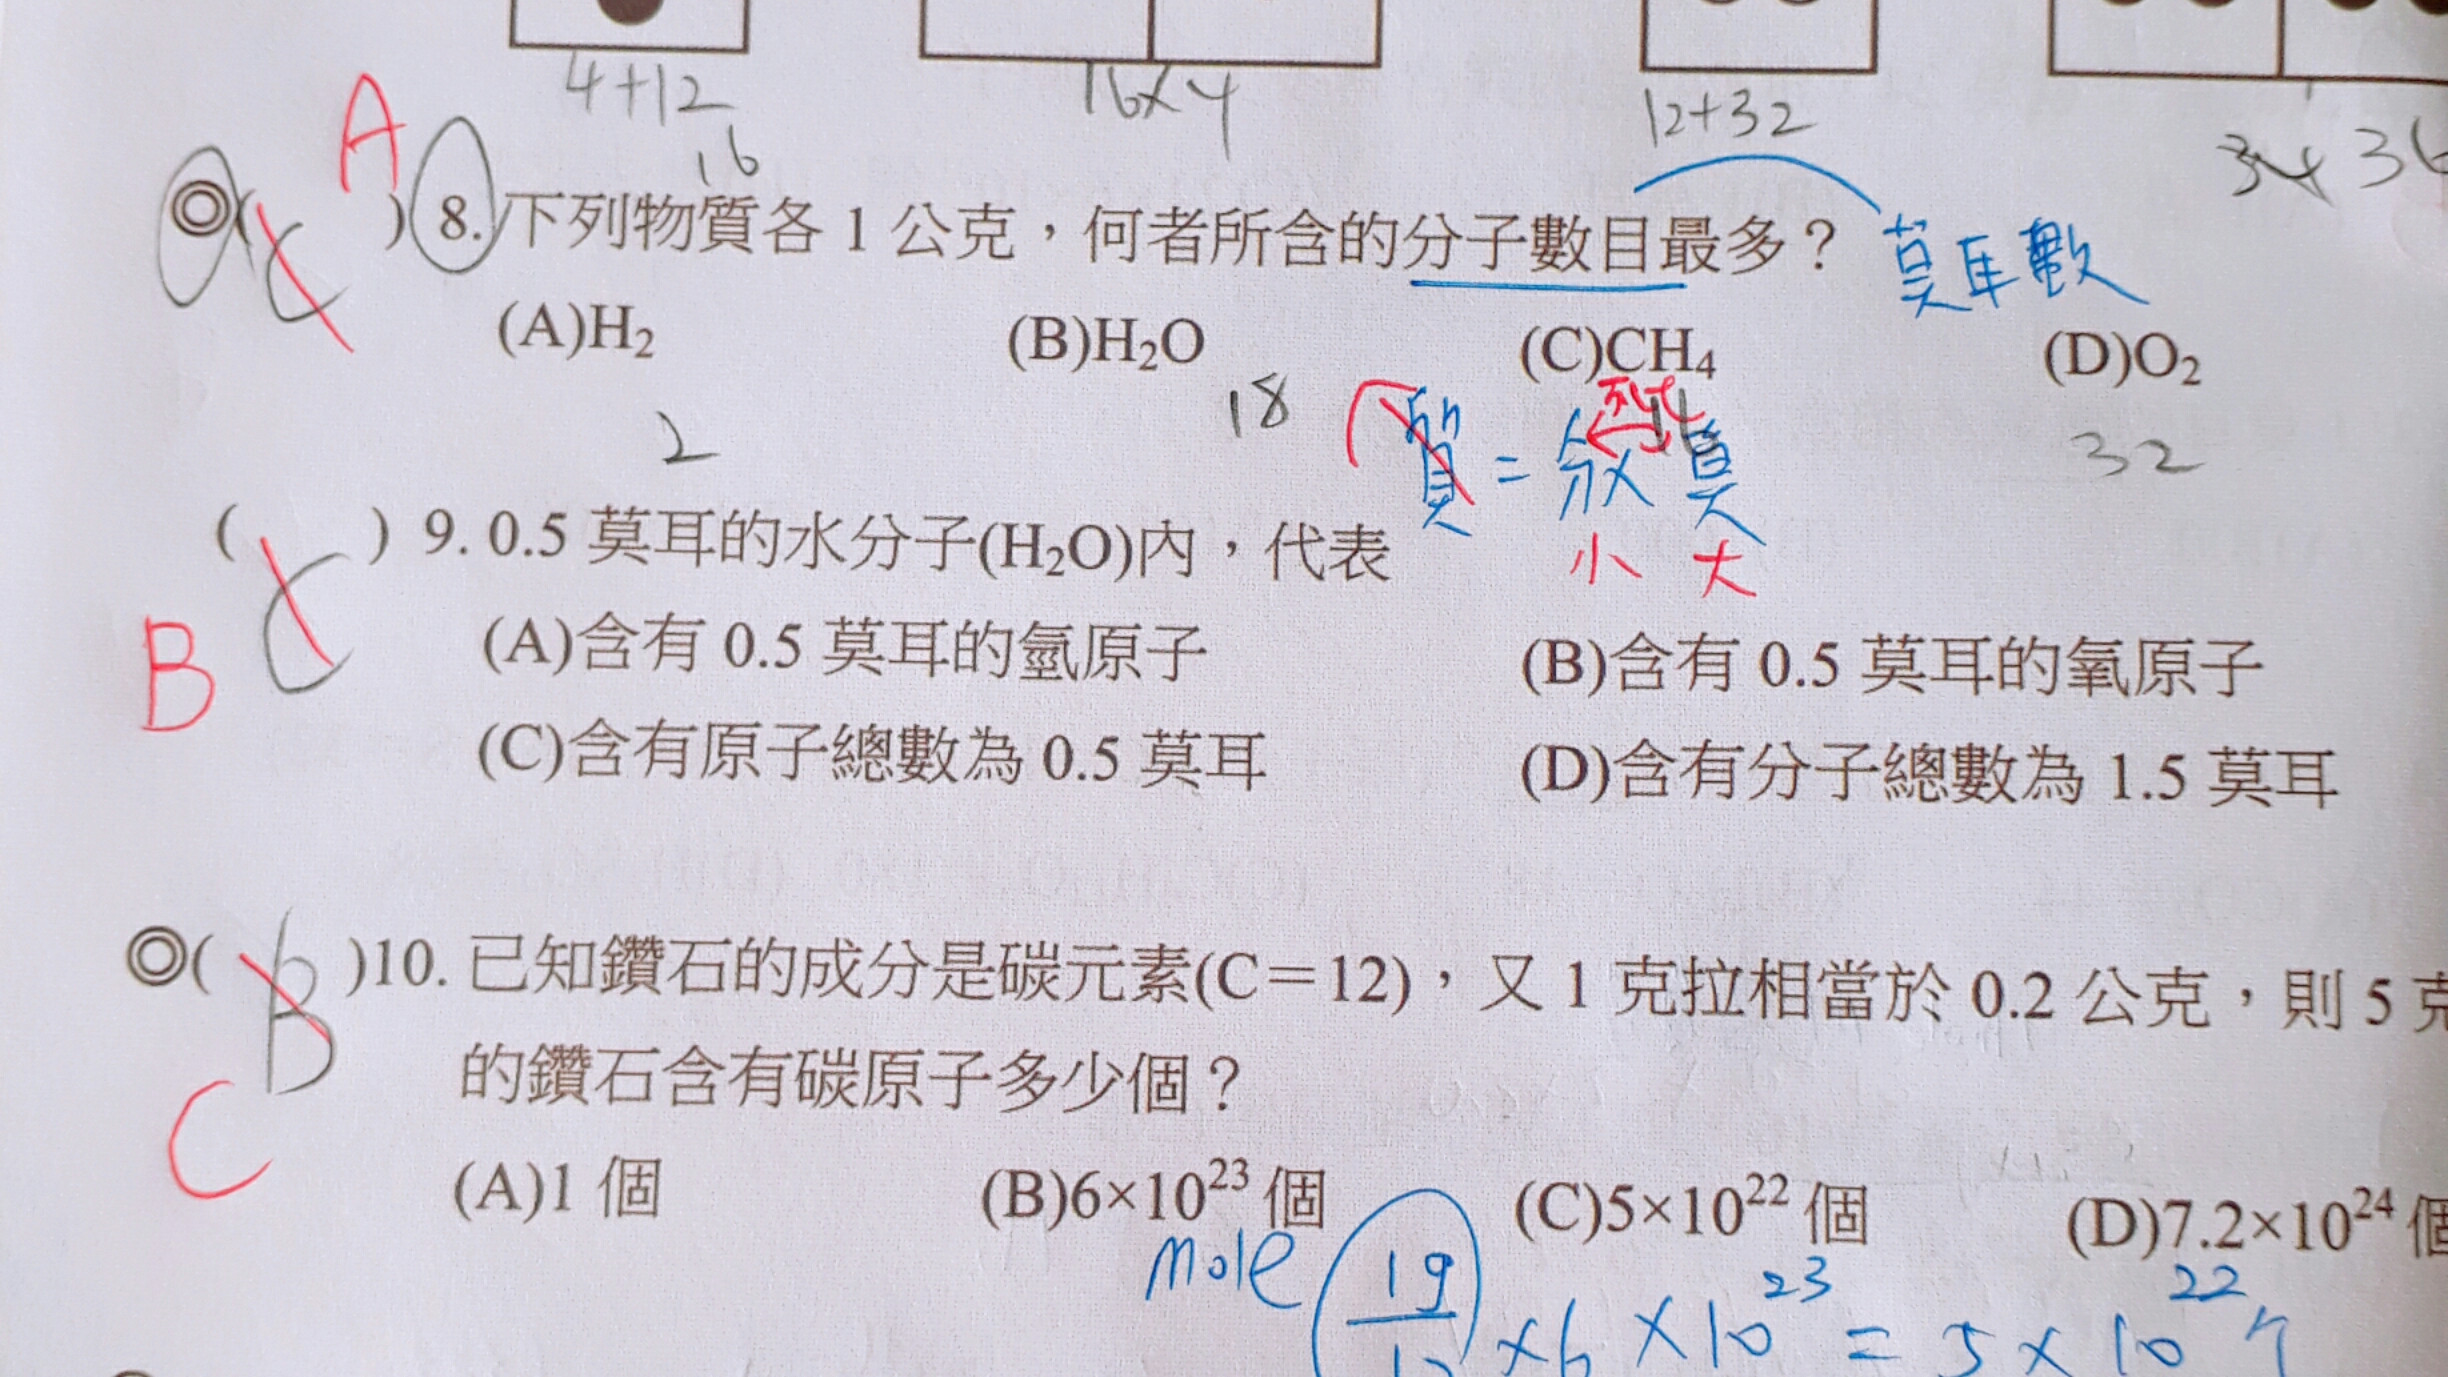 4+12
16
16×4
12+32
A
◎( C ) 8. 下列物質各 1 公克，何者所含的分子數目最多？ 莫耳數
(A)H₂ (B)H₂O (C)CH₄ (D)O₂
2 18 32
質 = 分 × 莫
小 大
( C ) 9. 0.5 莫耳的水分子(H₂O)內，代表
B
(A)含有 0.5 莫耳的氫原子 (B)含有 0.5 莫耳的氧原子
(C)含有原子總數為 0.5 莫耳 (D)含有分子總數為 1.5 莫耳
◎( B )10. 已知鑽石的成分是碳元素(C＝12)，又 1 克拉相當於 0.2 公克，則 5 克
的鑽石含有碳原子多少個？
C
(A)1 個 (B)6×10²³ 個 (C)5×10²² 個 (D)7.2×10²⁴ 個
mole 1g/12 ×6×10²³ = 5×10²² 个